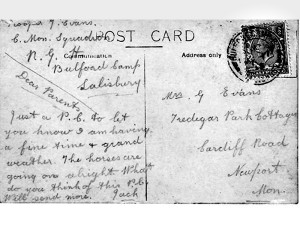 George T. Evans.
C. Mon. Squadron
R. G. H
POST CARD
Communication
Address only
Bulford Camp
Salisbury
Dear Parents
Just a P.C. to let
you know I am having
a fine time & grand
weather. The horses are
going on alright What
do you think of this P.C.
Will send more. Jack
Mrs G Evans
Tredegar Park Cottage
Cardiff Road
Newport
Mon.